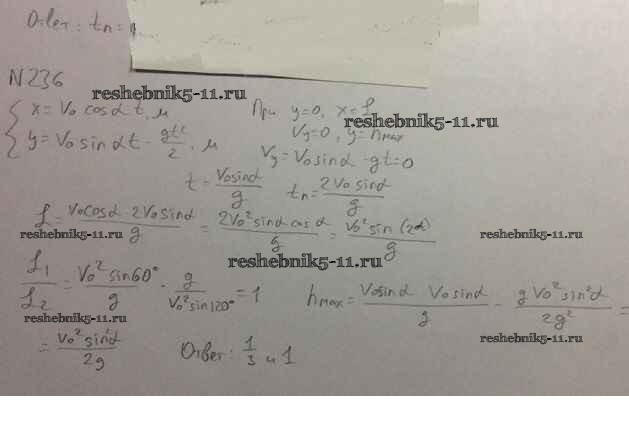 Ответ: tп =
N236
reshebnik5-11.ru
x = V₀ cosα t, м
При y=0, x=L
reshebnik5-11.ru
y = V₀ sinαt - gt²/2, м
Vy=0, y=hmax
Vy = V₀ sinα - gt = 0
t = V₀sinα/g tп = 2V₀ sinα/g
L = V₀cosα · 2V₀sinα/g = 2V₀² sinα cosα/g = V₀² sin(2α)/g
reshebnik5-11.ru
reshebnik5-11.ru
reshebnik5-11.ru
L₁/L₂ = V₀² sin60°/g · g/V₀² sin120° = 1
hmax = V₀sinα V₀sinα/g - gV₀² sin²α/2g² =
reshebnik5-11.ru
reshebnik5-11.ru
= V₀² sin²α/2g
Ответ: 1/3 и 1